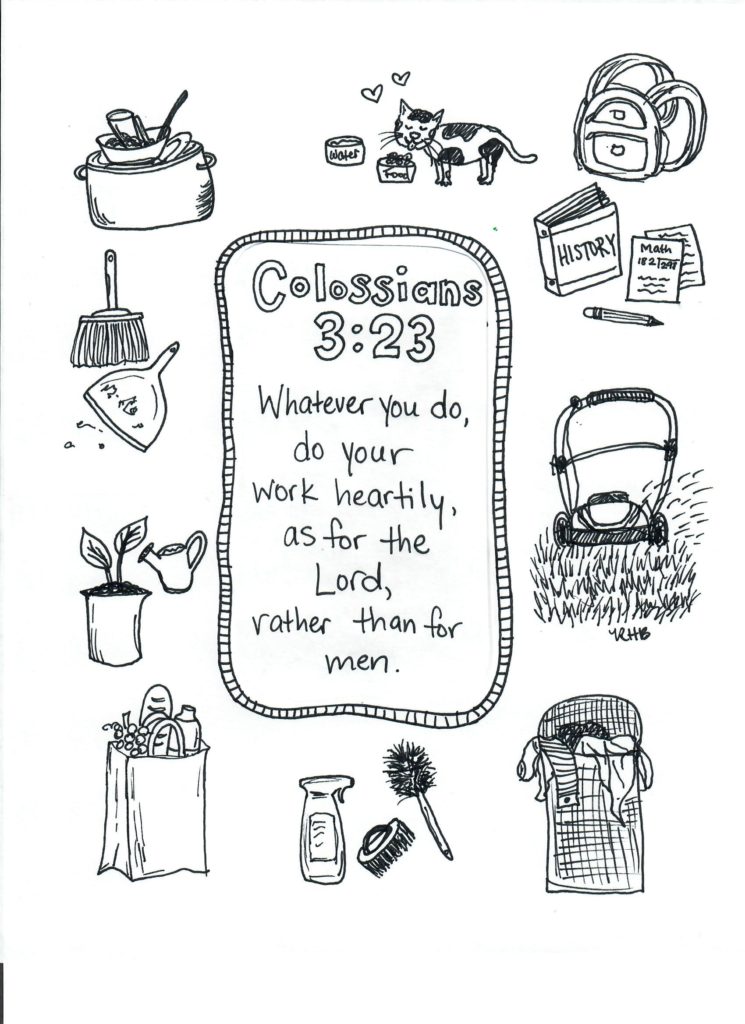 Water
Food
HISTORY
Math
182/248
Colossians
3:23
Whatever you do,
do your
work heartily,
as for the
Lord,
rather than for
men.
RHB